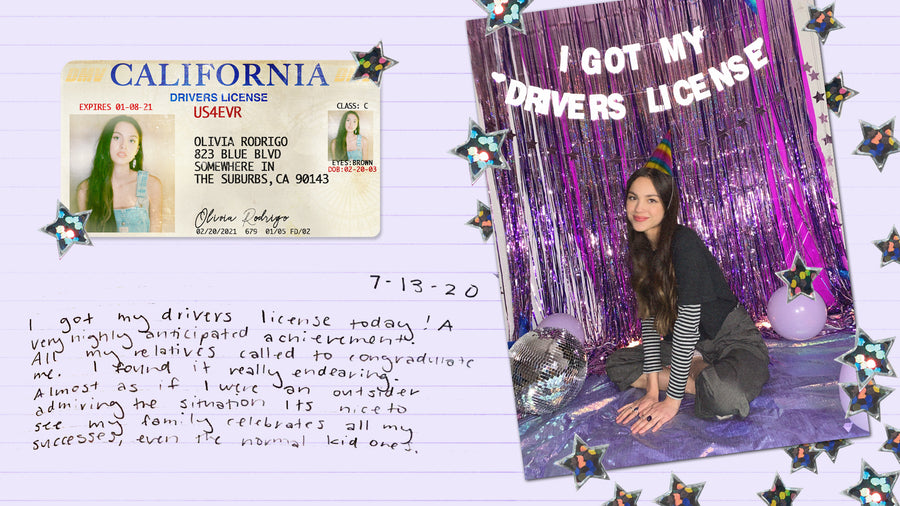 CALIFORNIA
DRIVERS LICENSE
EXPIRES 01-08-21
US4EVR
CLASS: C
OLIVIA RODRIGO
823 BLUE BLVD
SOMEWHERE IN
THE SUBURBS, CA 90143
EYES:BROWN
DOB:02-20-03
Olivia Rodrigo
02/20/2021 679 01/05 FD/02
I GOT MY
DRIVERS LICENSE
7-13-20
I got my drivers license today! A
very highly anticipated achievement.
All my relatives called to congradulate
me. I found it really endearing.
Almost as if I were an outsider
admiring the situation Its nice to
see my family celebrates all my
successes, even the normal kid ones.